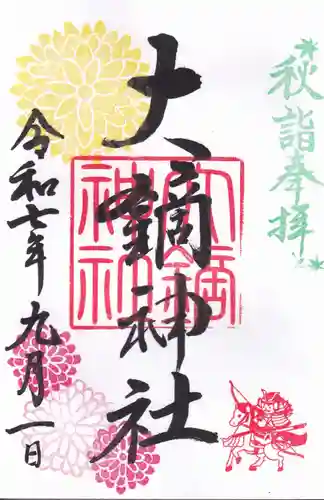 秋詣奉拝
大鏑神社
大鏑
神社
令和七年九月一日